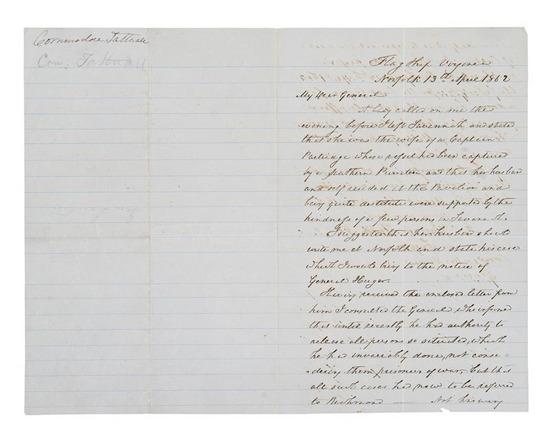 Commodore Tattnall
Com. Tattnall
Flag Ship Virginia
Norfolk 13th April 1862
My Dear General
A lady called on me the
evening before I left Savannah and stated
that she was the wife of a Captain
Partridge whose vessel had been captured
by a Southern Privateer and that her husband
and self resided at the Pavilion and
being quite destitute were supported by the
kindness of a few persons in Savannah.
I suggested that her husband should
write me at Norfolk and state his case
which I would bring to the notice of
General Huger.
Having received the enclosed letter from
him I consulted the General who informed
that until recently he had authority to
release all persons so situated, which
he had invariably done, not consi-
dering them prisoners of war, but that
all such cases had now to be referred
to Richmond — Not knowing